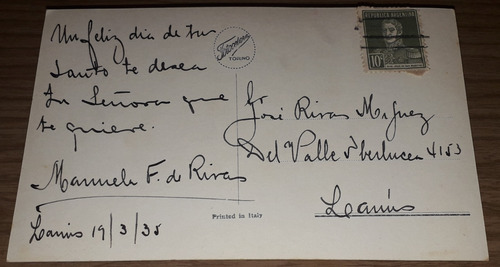 Un feliz dia de tu
Santo te desea
tu Señora que
te quiere.
Manuela F. de Rivas
Lanús 19/3/35
Fotocelere
TORINO
REPUBLICA ARGENTINA
10
Sr José Rivas Miguez
Del Valle Iberlucea 4153
Lanús
Printed in Italy